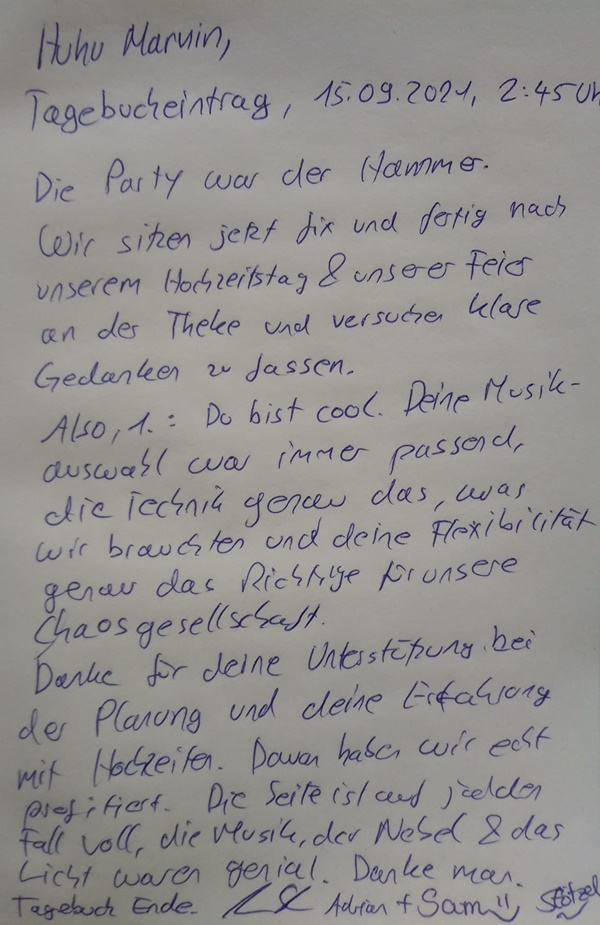 Huhu Marvin,
Tagebucheintrag, 15.09.2021, 2:45 Uh
Die Party war der Hammer.
Wir sitzen jetzt fix und fertig nach
unserem Hochzeitstag & unserer Feier
an der Theke und versuchen klare
Gedanken zu fassen.
Also, 1.: Du bist cool. Deine Musik-
auswahl war immer passend,
die Technik genau das, was
wir brauchten und deine Flexibilität
genau das Richtige für unsere
Chaosgesellschaft.
Danke für deine Unterstützung bei
der Planung und deine Erfahrung
mit Hochzeiten. Davon haben wir echt
profitiert. Die Seite ist auf jeden
Fall voll, die Musik, der Nebel & das
Licht waren genial. Danke man.
Tagebuch Ende. Adrian + Sam Stötzel